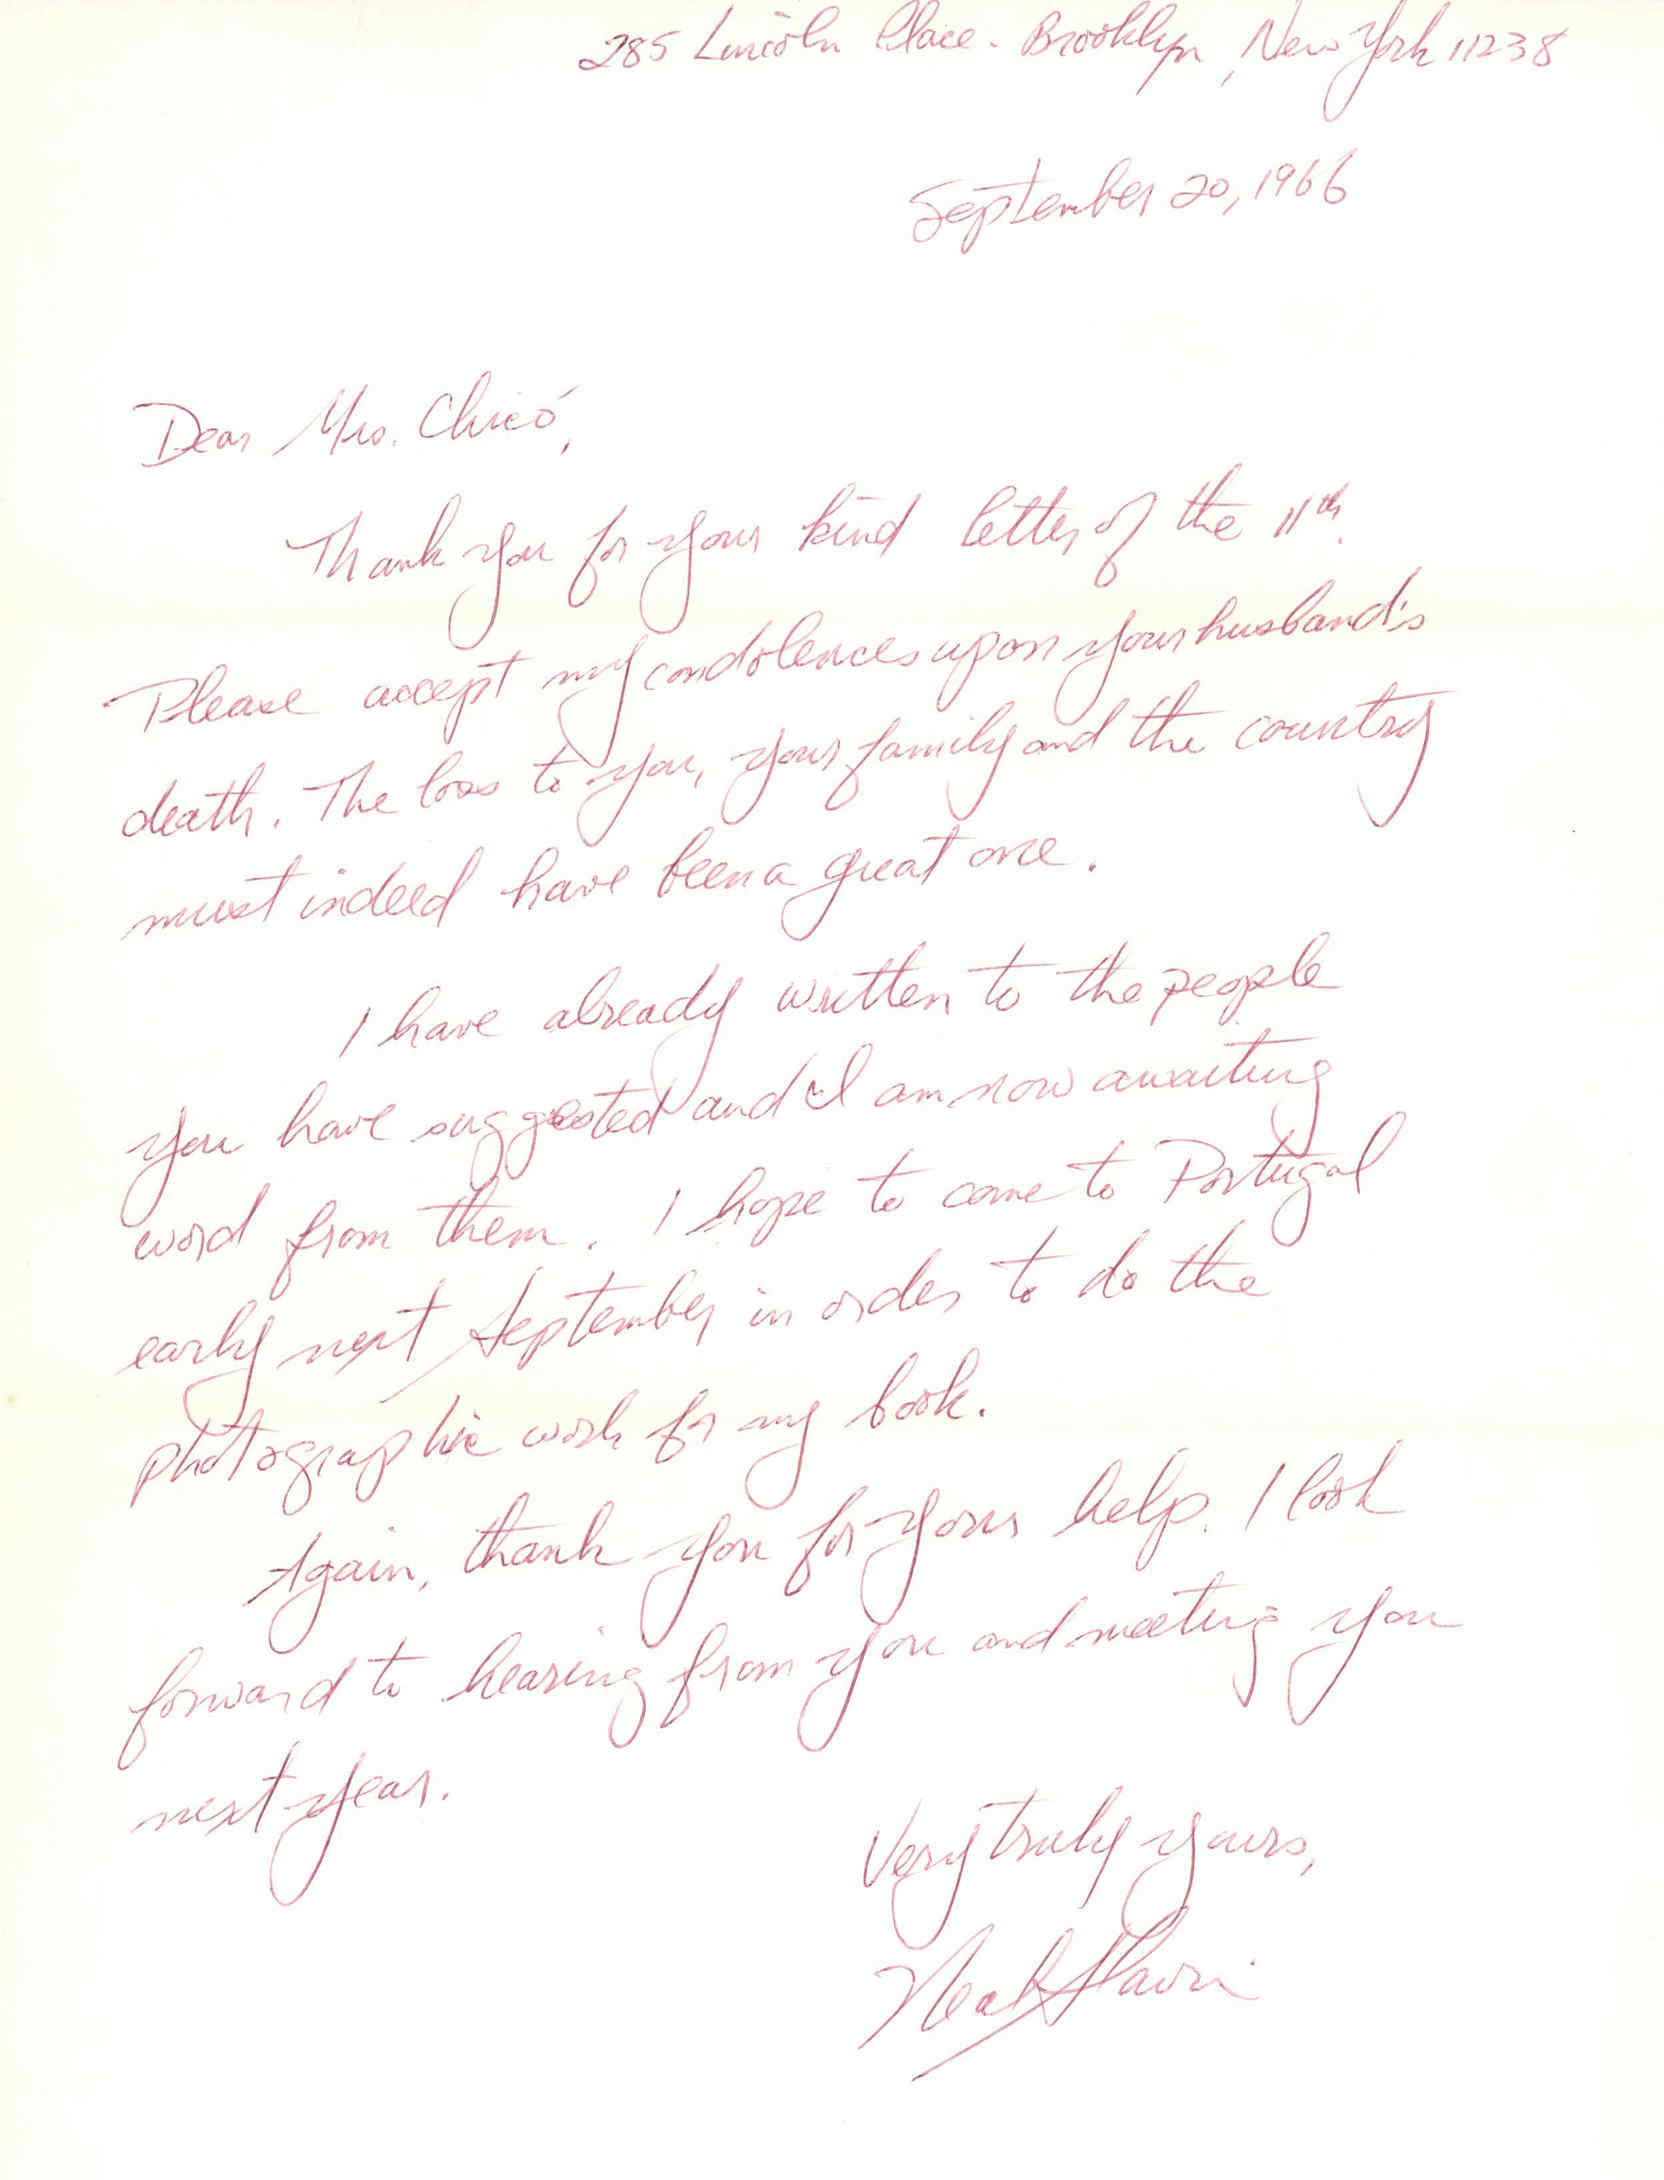 285 Lincoln Place - Brooklyn, New York 11238
September 20, 1966
Dear Mrs. Chicó,
Thank you for your kind letter of the 11th.
Please accept my condolences upon your husband's
death. The loss to you, your family and the country
must indeed have been a great one.
I have already written to the people
you have suggested and I am now awaiting
word from them. I hope to come to Portugal
early next September in order to do the
photographic work for my book.
Again, thank you for your help. I look
forward to hearing from you and meeting you
next year.
Very truly yours,
Neal Slavin